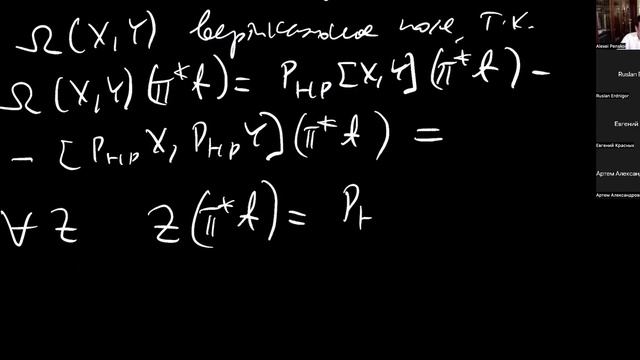 Ω(X,Y) вертикальное поле, т.к.
Ω(X,Y)(π*f) = P_HP [X,Y](π*f) –
– [P_HP X, P_HP Y](π*f) =
∀ Z Z(π*f) = P_H
Alexei Penskoi
Ruslan
Ruslan Erdnigor
Евгений
Евгений Красных
Артем Александр
Артем Александров